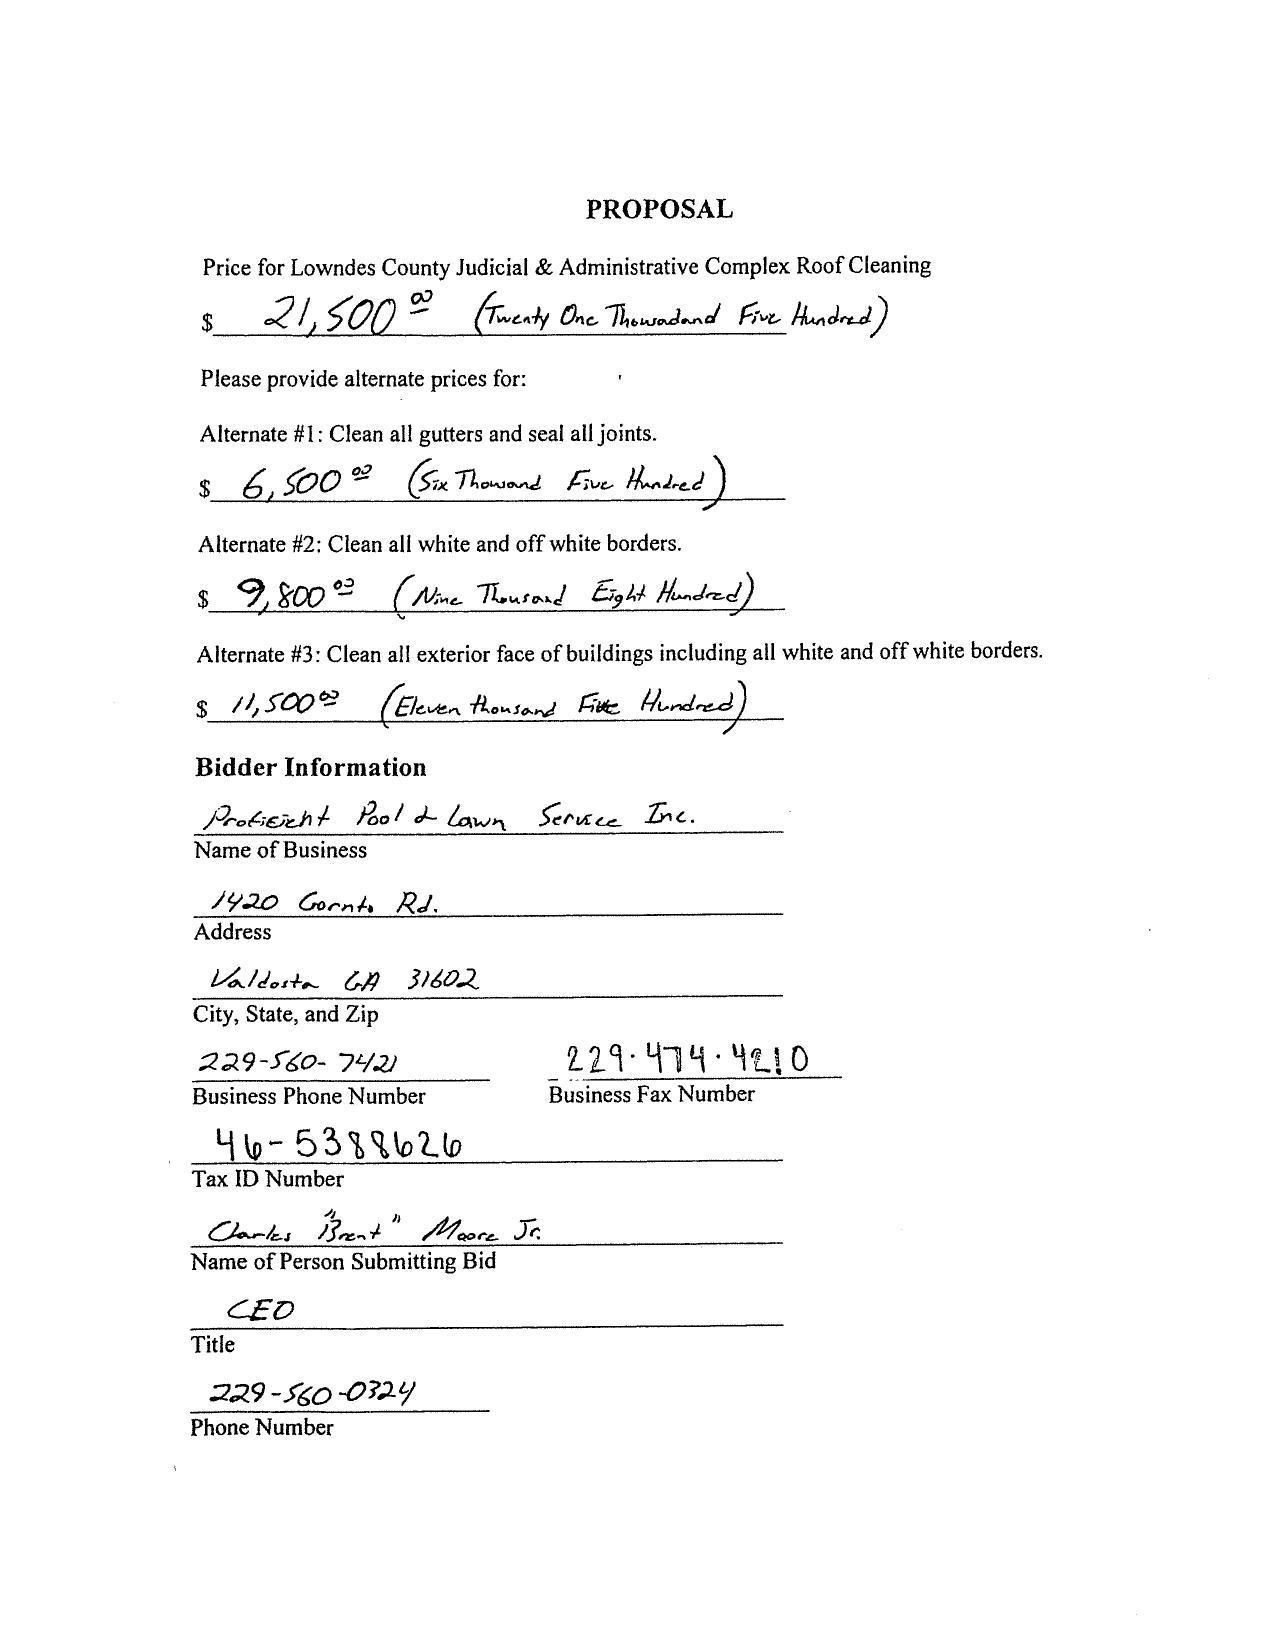 PROPOSAL
Price for Lowndes County Judicial & Administrative Complex Roof Cleaning
$ 21,500 00 (Twenty One Thousadand Five Hundred)
Please provide alternate prices for:
Alternate #1: Clean all gutters and seal all joints.
$ 6,500 00 (Six Thousand Five Hundred)
Alternate #2: Clean all white and off white borders.
$ 9,800 00 (Nine Thousand Eight Hundred)
Alternate #3: Clean all exterior face of buildings including all white and off white borders.
$ 11,500 00 (Eleven thousand Five Hundred)
Bidder Information
Proficient Pool & Lawn Service Inc.
Name of Business
1420 Rd.
Address
Valdosta GA 31602
City, State, and Zip
229-560-7421 229.474.4210
Business Phone Number Business Fax Number
46-5388626
Tax ID Number
Charles "Brent" Moore Jr.
Name of Person Submitting Bid
CEO
Title
229-560-0324
Phone Number